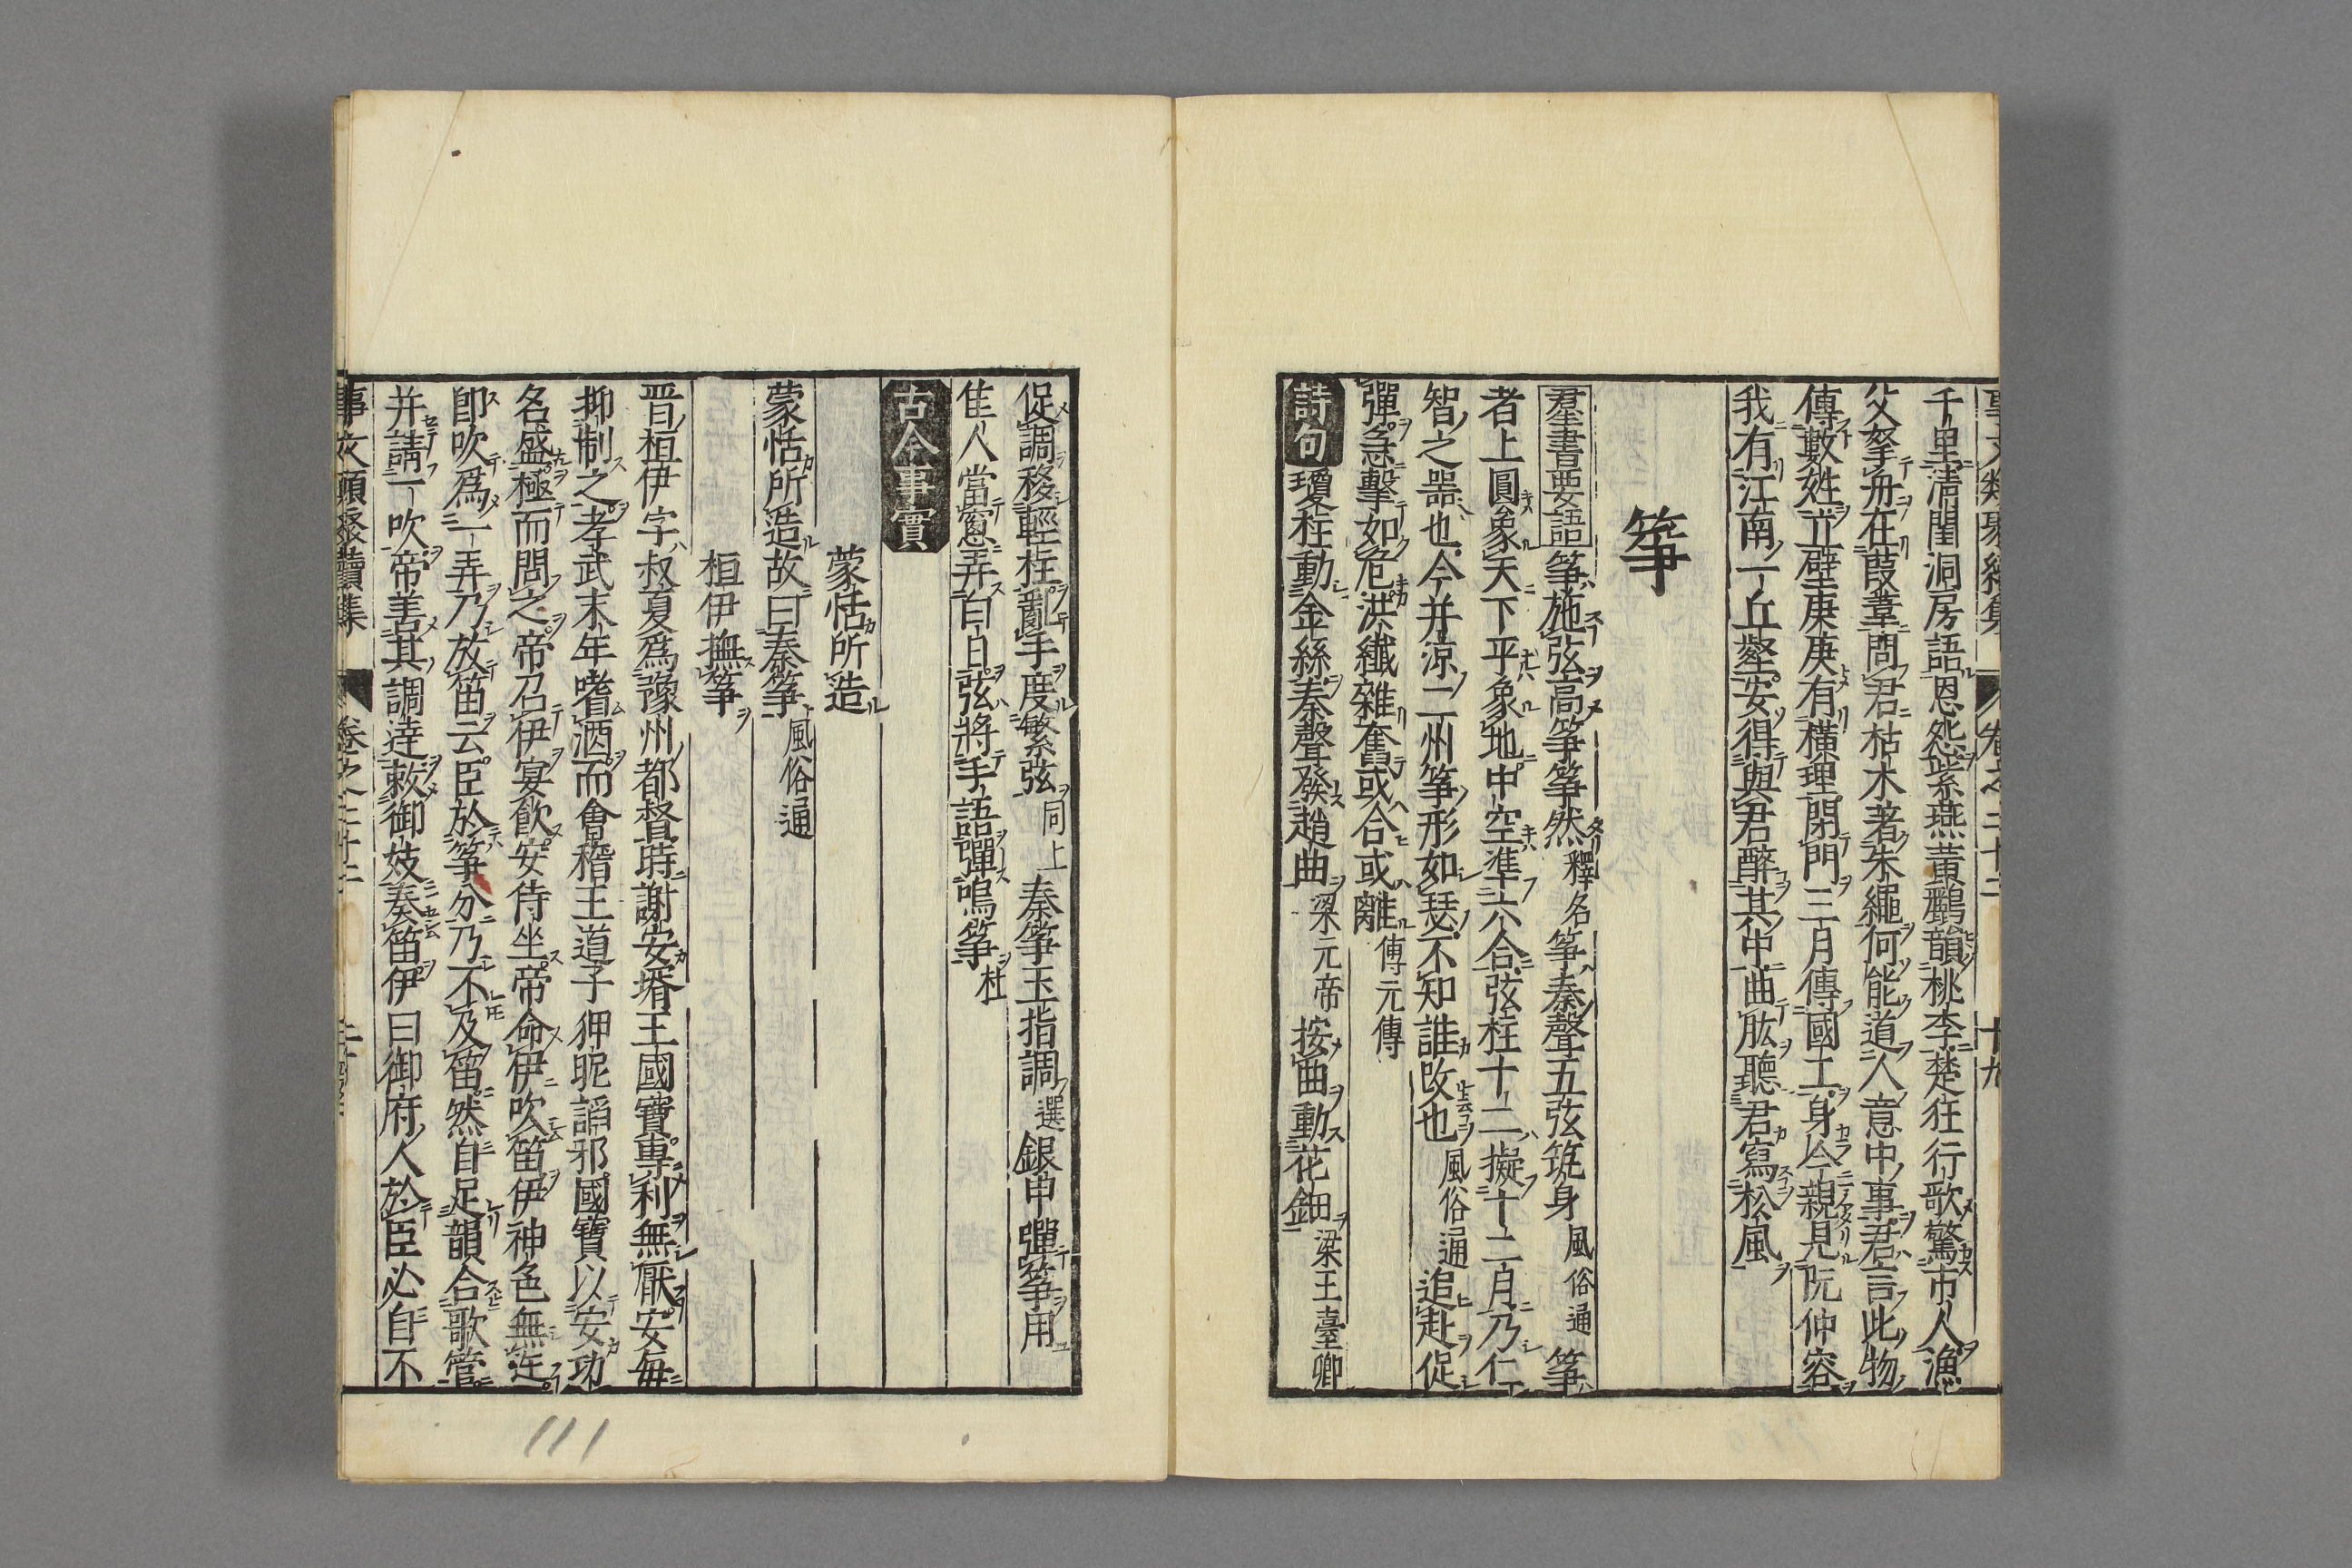 千里清閨洞房語恩怨紫燕黃鸝韻桃李楚狂行歌驚市人漁
父拏舟在葭葦問君枯木著朱繩何能道人意中事君言此物
傳數姓玄璧庚庚有橫理閉門三月傳國工身今親見阮仲容
我有江南一丘壑安得與君醉其中曲肱聽君寫松風
筝
羣書要語 筝施弦高筝筝然釋名筝秦聲五弦筑身風俗通筝
者上圓象天下平象地中空準六合弦柱十二擬十二月乃仁
智之器也今并涼二州筝形如瑟不知誰改也風俗通追赴促
彈急擊如危洪纖雜奮或合或離傅元傳
詩句 瓊柱動金絲秦聲發趙曲梁元帝按曲動花鈿梁王臺卿
促調移輕柱亂手度繁弦同上秦筝玉指調選銀甲彈筝用
隹人當窓弄白日弦將手語彈鳴筝杜
古今事實
蒙恬所造
蒙恬所造故曰秦筝風俗通
桓伊撫筝
晋桓伊字叔夏爲豫州都督時謝安壻王國寶專利無厭安每
抑制之孝武末年嗜酒而會稽王道子狎昵謟邪國寶以安功
名盛極而間之帝召伊宴飮安侍坐帝命伊吹笛伊神色無迕
卽吹爲一弄乃放笛云臣於筝分乃不及笛然自足韻合歌管
并請一吹帝善其調達敕御妓奏笛伊曰御府人於臣必自不
事文類聚續集 卷之二十二